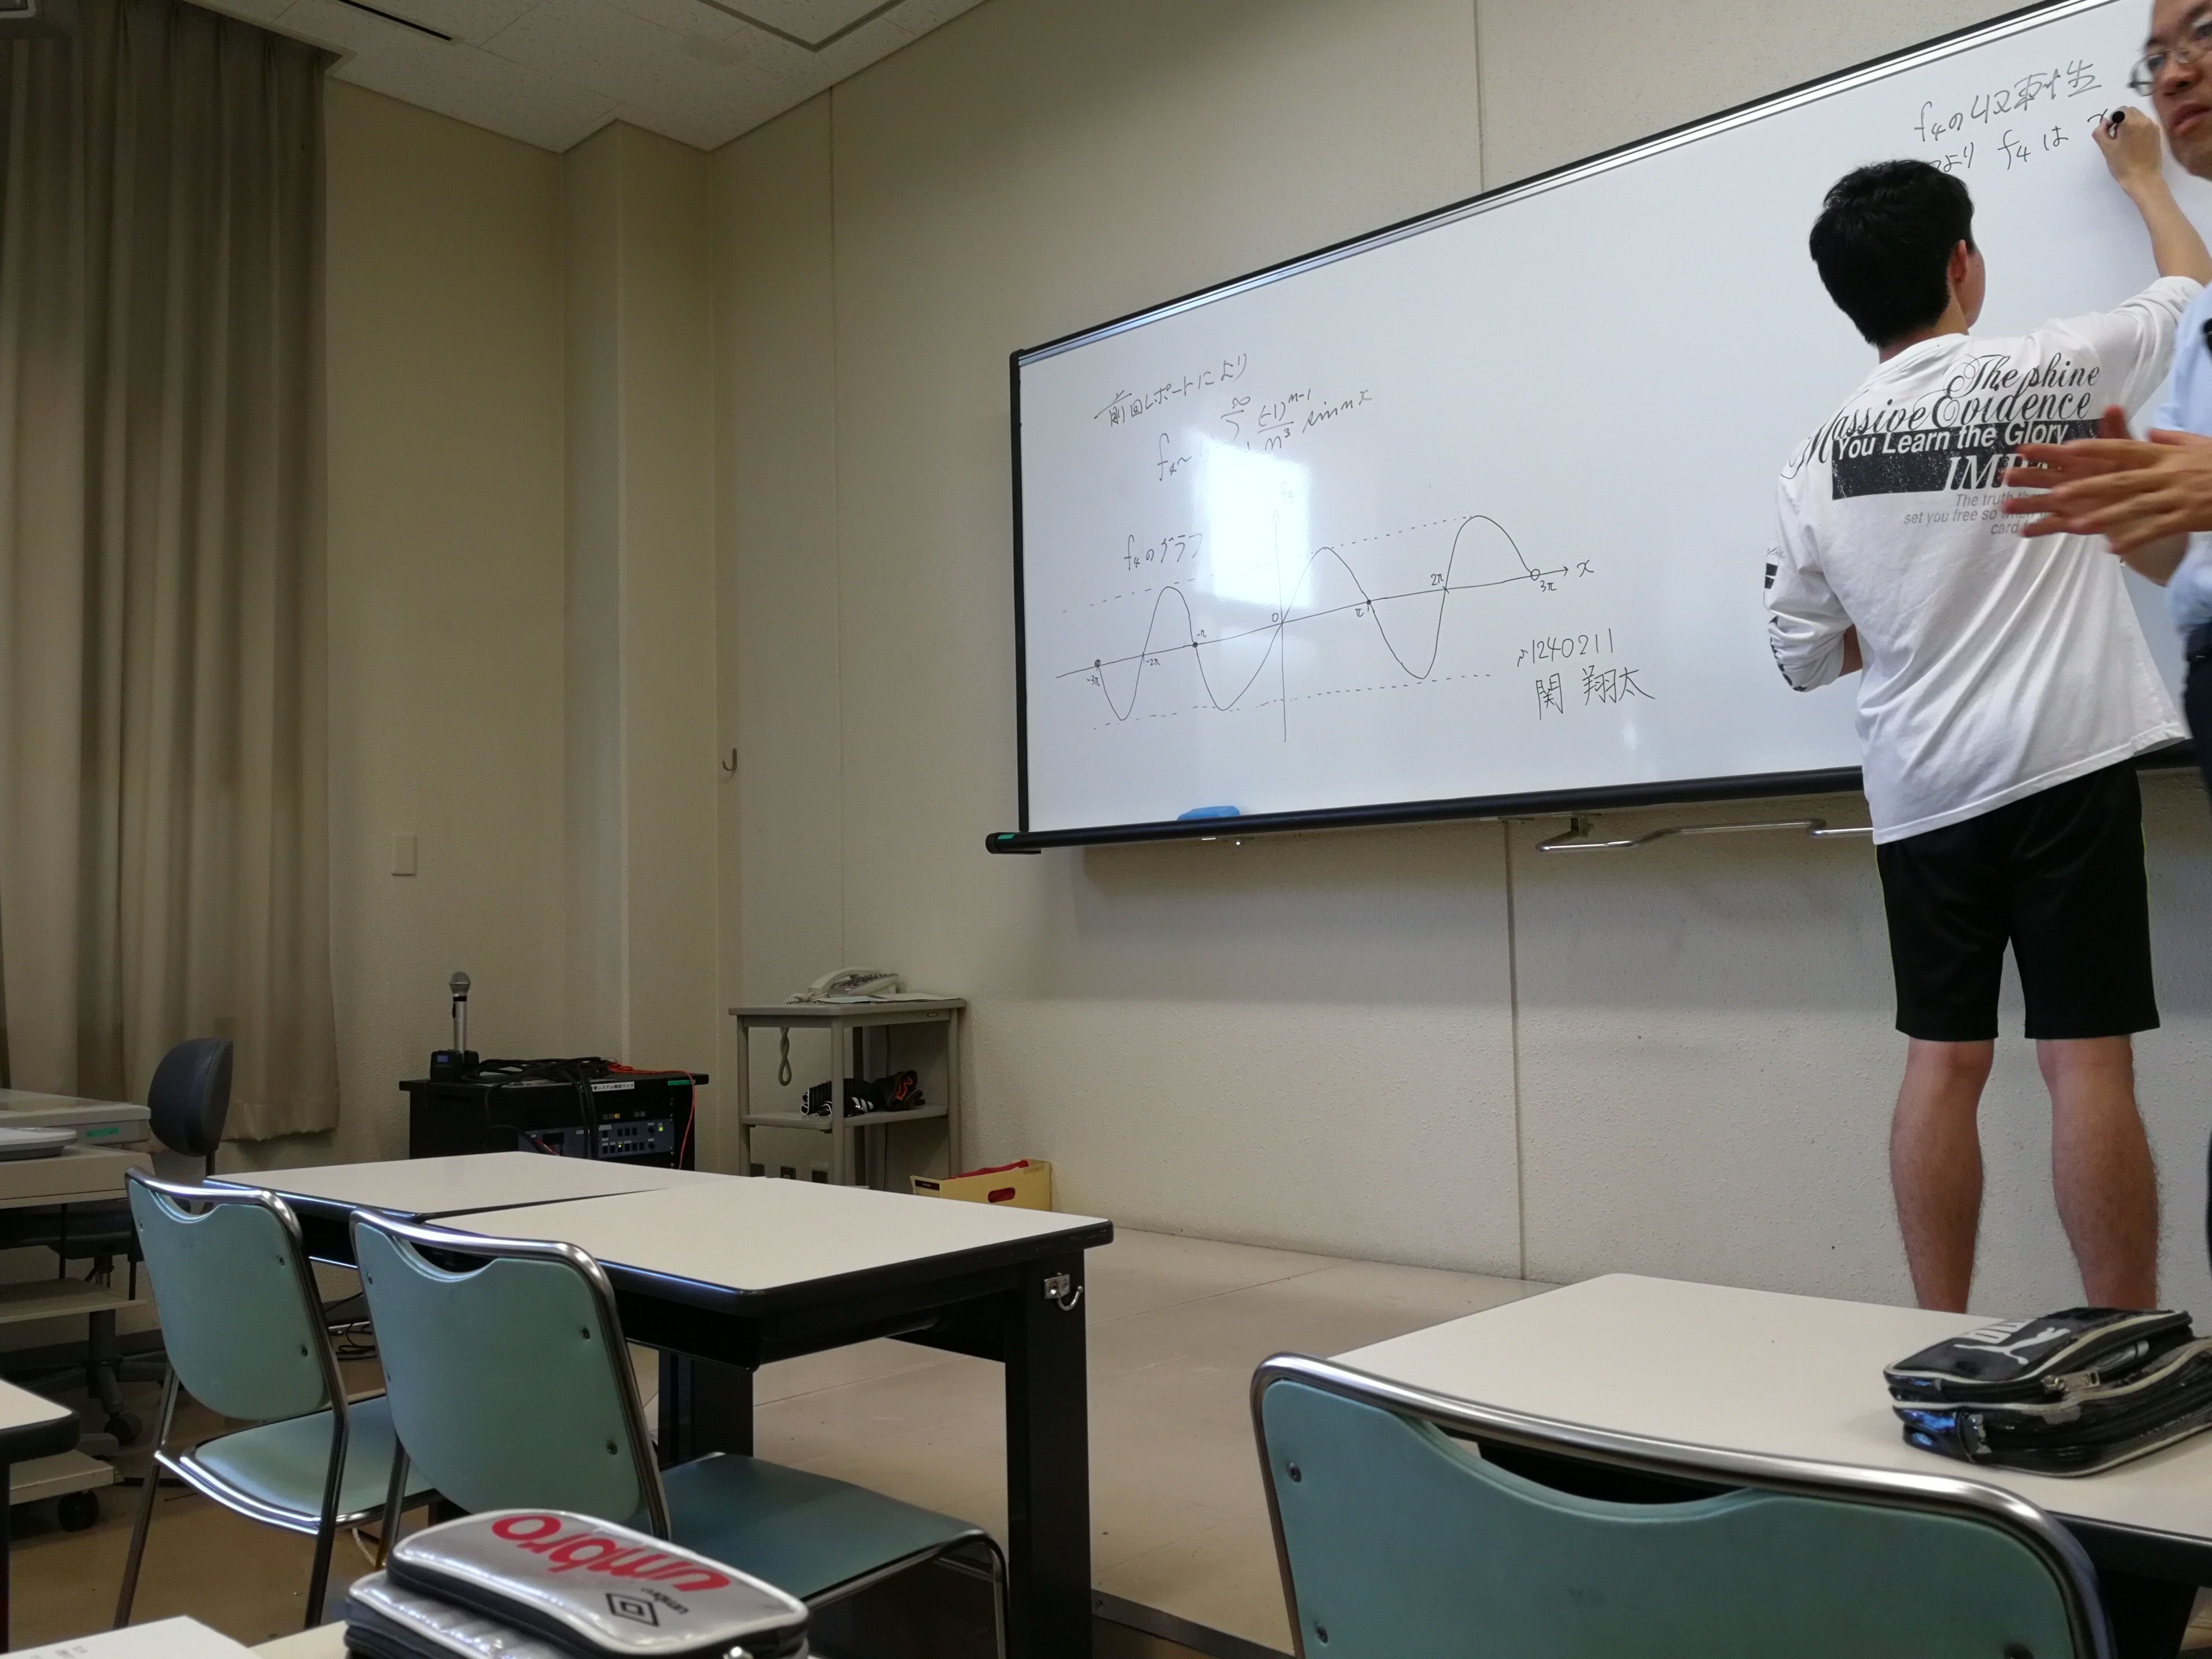 前回レポートにより
f₄~ ∞ Σ (-1)ⁿ⁻¹ / n³ sin nx
f₄のグラフ
f₄
-3π -2π -π 0 π 2π 3π x
1240211
関 翔太
f₄の収束性
より f₄は
The shine
Massive Evidence
You Learn the Glory
The truth
set you free so when
umbro
umbro